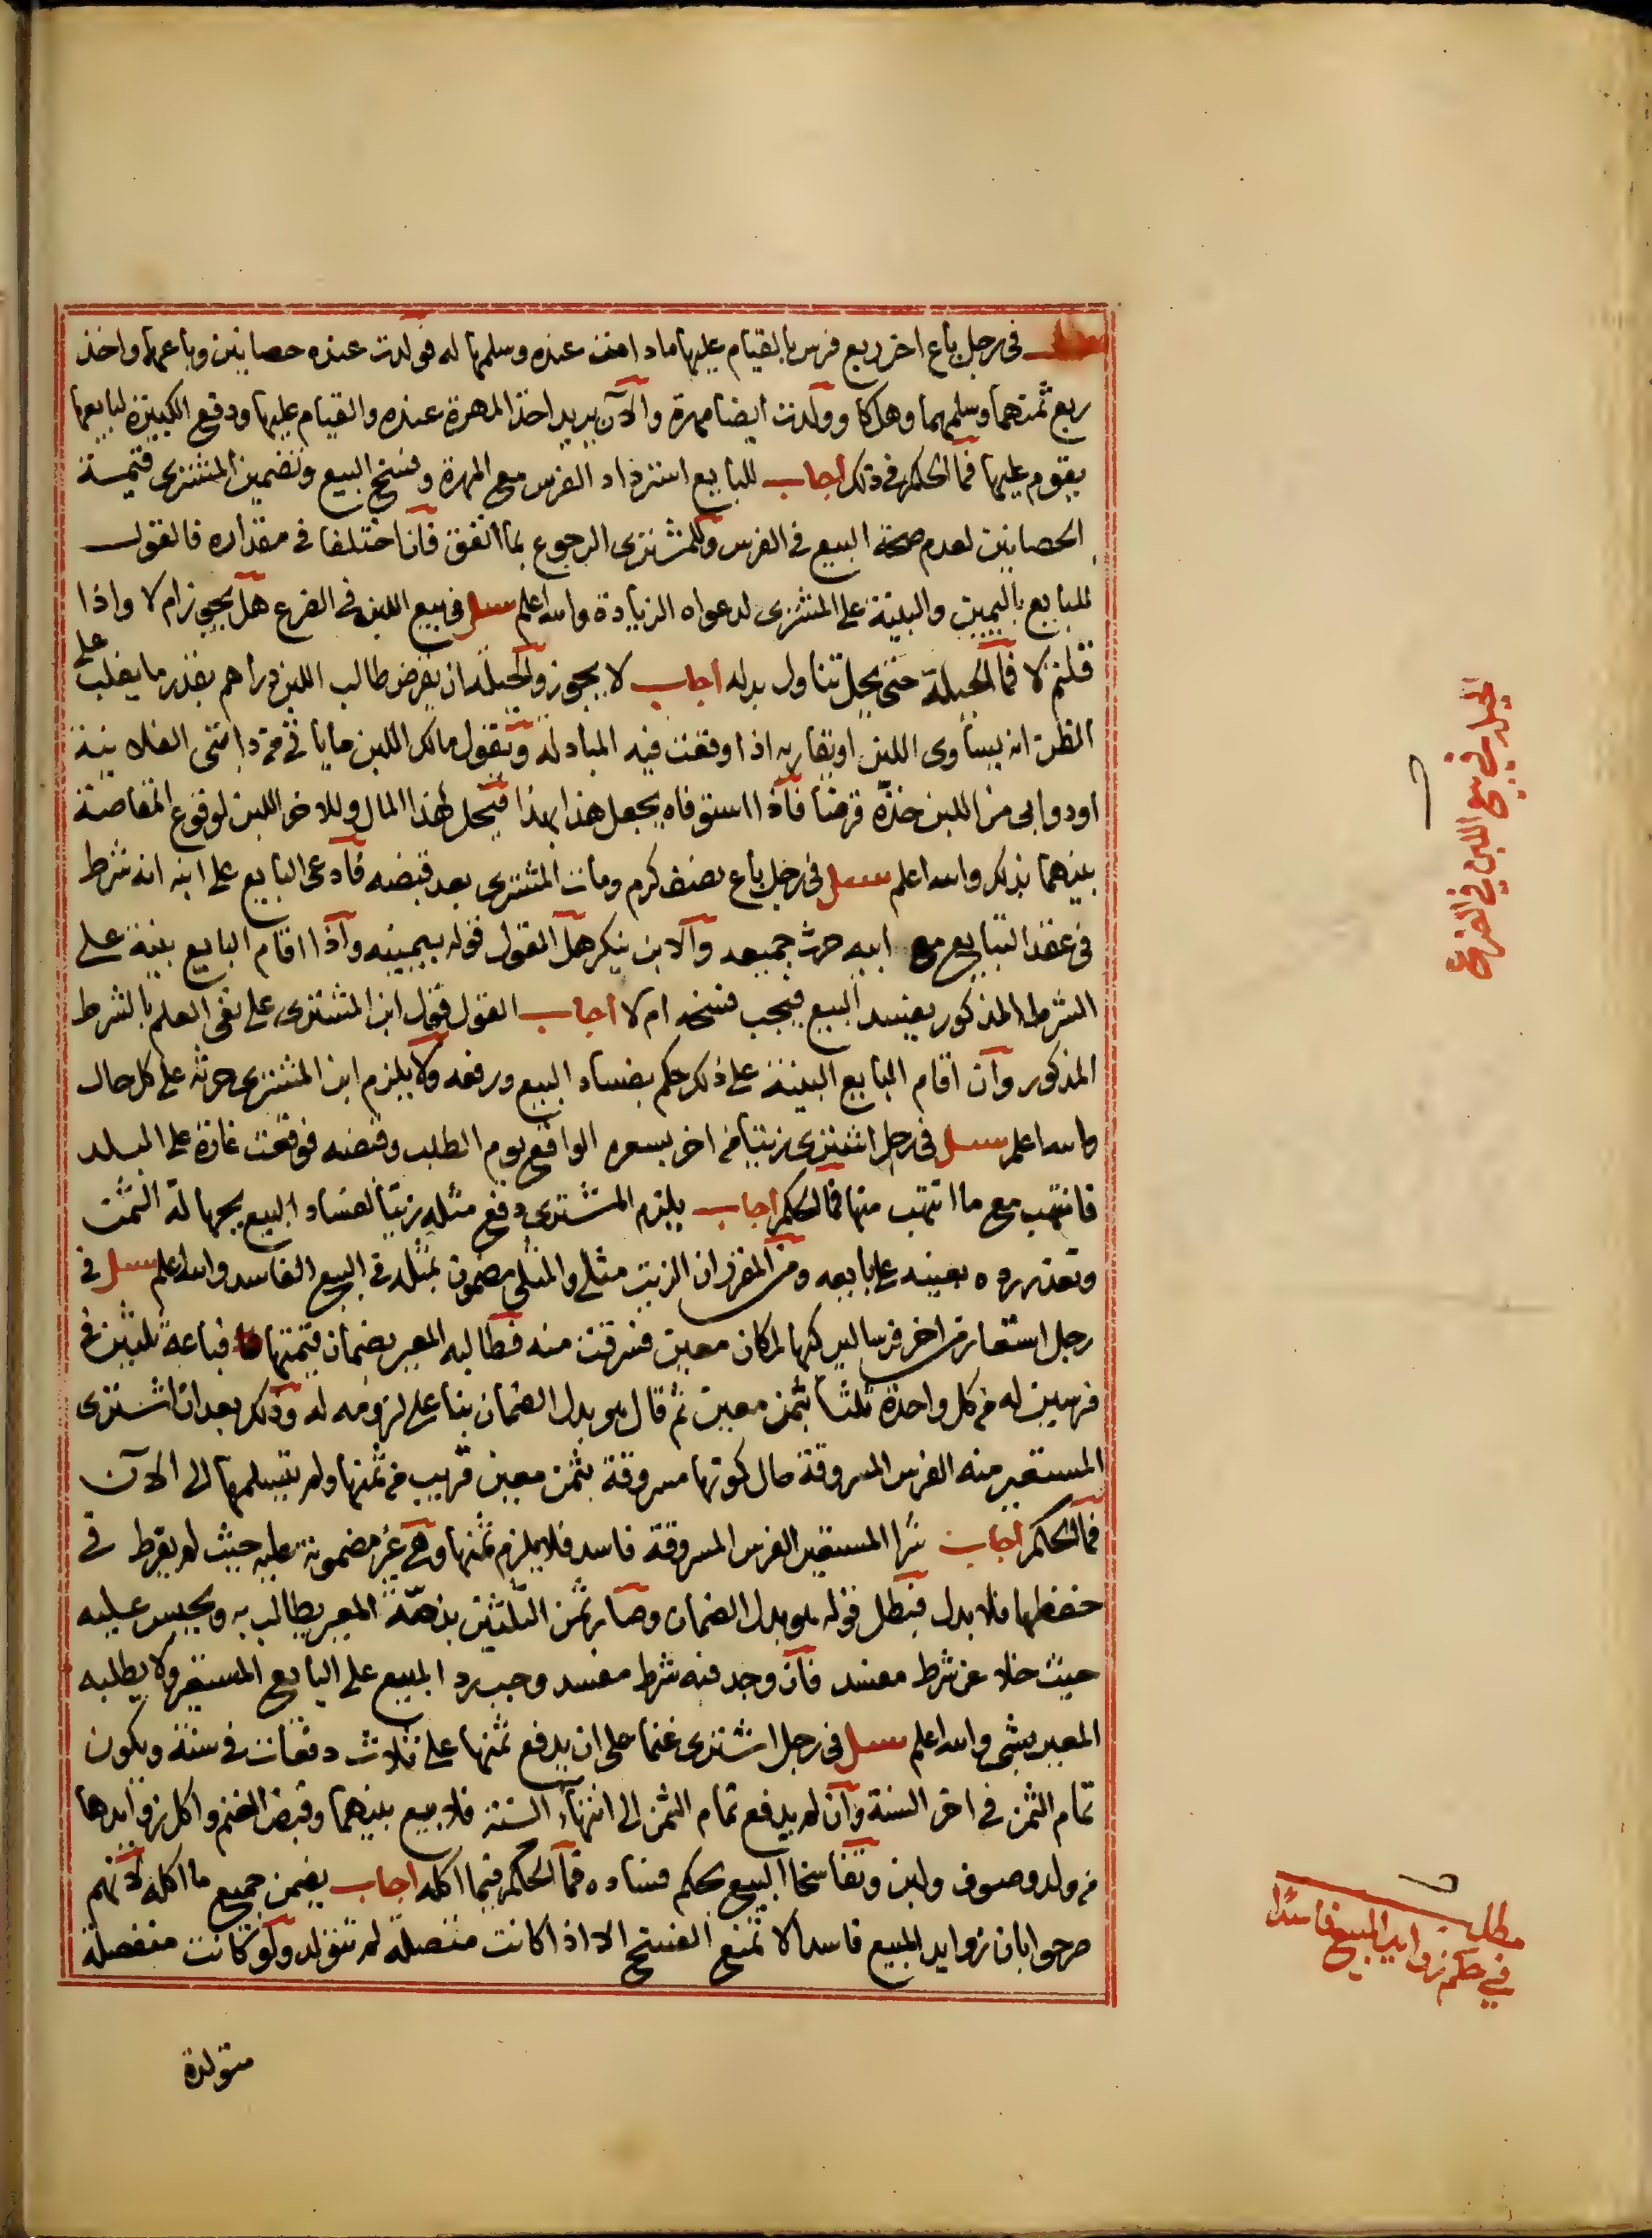 في رجل باع اخر ربع فرس بالقيام عليها مادامت عنده وسلمها له فولدت عنده حصانين وباعهما واخذ
ربع ثمنهما وسلمهما وهلكا وولدت ايضا مهرة والآن يريد اخذ المهرة عنده والقيام عليها ودفع الكبيرة لبايعها
يقوم عليها فما الحكم في ذلك اجاب للبايع استرداد الفرس مع المهرة وفسخ البيع وتضمين المشترى قيمة
الحصانين لعدم صحة البيع في الفرس وللمشترى الرجوع بما انفق فان اختلفا في مقداره فالقول
للبايع باليمين والبينة على المشترى لدعواه الزيادة والله اعلم سئل في بيع اللبن في الضرع هل يجوز ام لا واذا
قلتم لا فما الحيلة حتى يحل تناول بدله اجاب لا يجوز والحيلة ان يقرض طالب اللبن دراهم بقدر ما يغلب على
الظن انه يساوى اللبن او يقاربه اذا وقعت فيه المبادلة ويقول مالك اللبن ما ياتي من دابتى الفلانية
او دوابى من اللبن خذه قرضا فاذا استوفاه يجعل هذا بهذا فيحل لهذا المال وللاخر اللبن لوقوع المقاصة
بينهما بذلك والله اعلم سئل في رجل باع نصف كرم ومات المشترى بعد قبضه فادعى البايع على ابنه انه شرط
في عقد التبايع مع ابيه حرث جميعه والابن ينكر هل القول قوله بيمينه واذا اقام البايع بينة على
الشرط المذكور يفسد البيع فيجب فسخه ام لا اجاب القول قول ابن المشترى على نفى العلم بالشرط
المذكور وان اقام البايع البينة على ذلك حكم بفساد البيع ورفعه ولا يلزم ابن المشترى حرثه على كل حال
والله اعلم سئل في رجل اشترى زيتا من اخر بسعره الواقع يوم الطلب وقبضه فوقعت غارة على البلد
فانتهب مع ما انتهب منها فما الحكم اجاب يلزم المشترى دفع مثله زيتا لفساد البيع بجهالة الثمن
وتعذر رده بعينه على بايعه ومن المقرر ان الزيت مثلى والمثلى مضمون بمثله في البيع الفاسد والله اعلم سئل في
رجل استعار من اخر فرسا ليركبها لمكان معين فسرقت منه فطالبه المعير بضمان قيمتها فباعه ثلثين في
فرسين له من كل واحدة ثلثا بثمن معين ثم قال هو بدل الضمان بناء على لزومه له وذلك بعد ان اشترى
المستعير منه الفرس المسروقة حال كونها مسروقة بثمن معين قريب من ثمنها ولم يتسلمها الى الآن
فما الحكم اجاب شرا المستعير الفرس المسروقة فاسد فلا يلزم ثمنها وهى غير مضمونة عليه حيث لم يفرط في
حفظها فلا بدل فبطل قوله هو بدل الضمان وصار ثمن الثلثين بذمة المعير يطالب به ويحبس عليه
حيث خلا عن شرط مفسد فان وجد فيه شرط مفسد وجب رد المبيع على البايع المستعير ولا يطلبه
المعير بشى والله اعلم سئل في رجل اشترى غنما على ان يدفع ثمنها على ثلاث دفعات في سنة ويكون
تمام الثمن في اخر السنة وان لم يدفع تمام الثمن الى انتهاء السنة فلا بيع بينهما وقبض الغنم واكل زوايدها
من ولد وصوف ولبن وتفاسخا البيع بحكم فساده فما الحكم فيما اكله اجاب يضمن جميع ما اكله لانهم
صرحوا بان زوايد المبيع فاسدا لا تمنع الفسخ الا اذا كانت متصلة لم تتولد ولو كانت منفصلة
متولدة
الحيلة في بيع اللبن في الضرع
مطلب
في حكم زوايد المبيع فاسدا